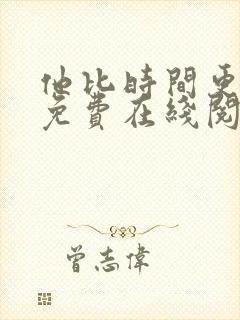 他比時間更
免費在綫閱
曾志偉